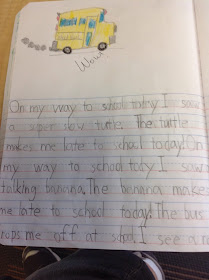 Wow!
On my way to school today I saw
a super slow turtle. The turtle
makes me late to school today! On
my way to school tody I saw a
talking banana. The banana makes
me late to school today! The bus
rops me off at school. I see a